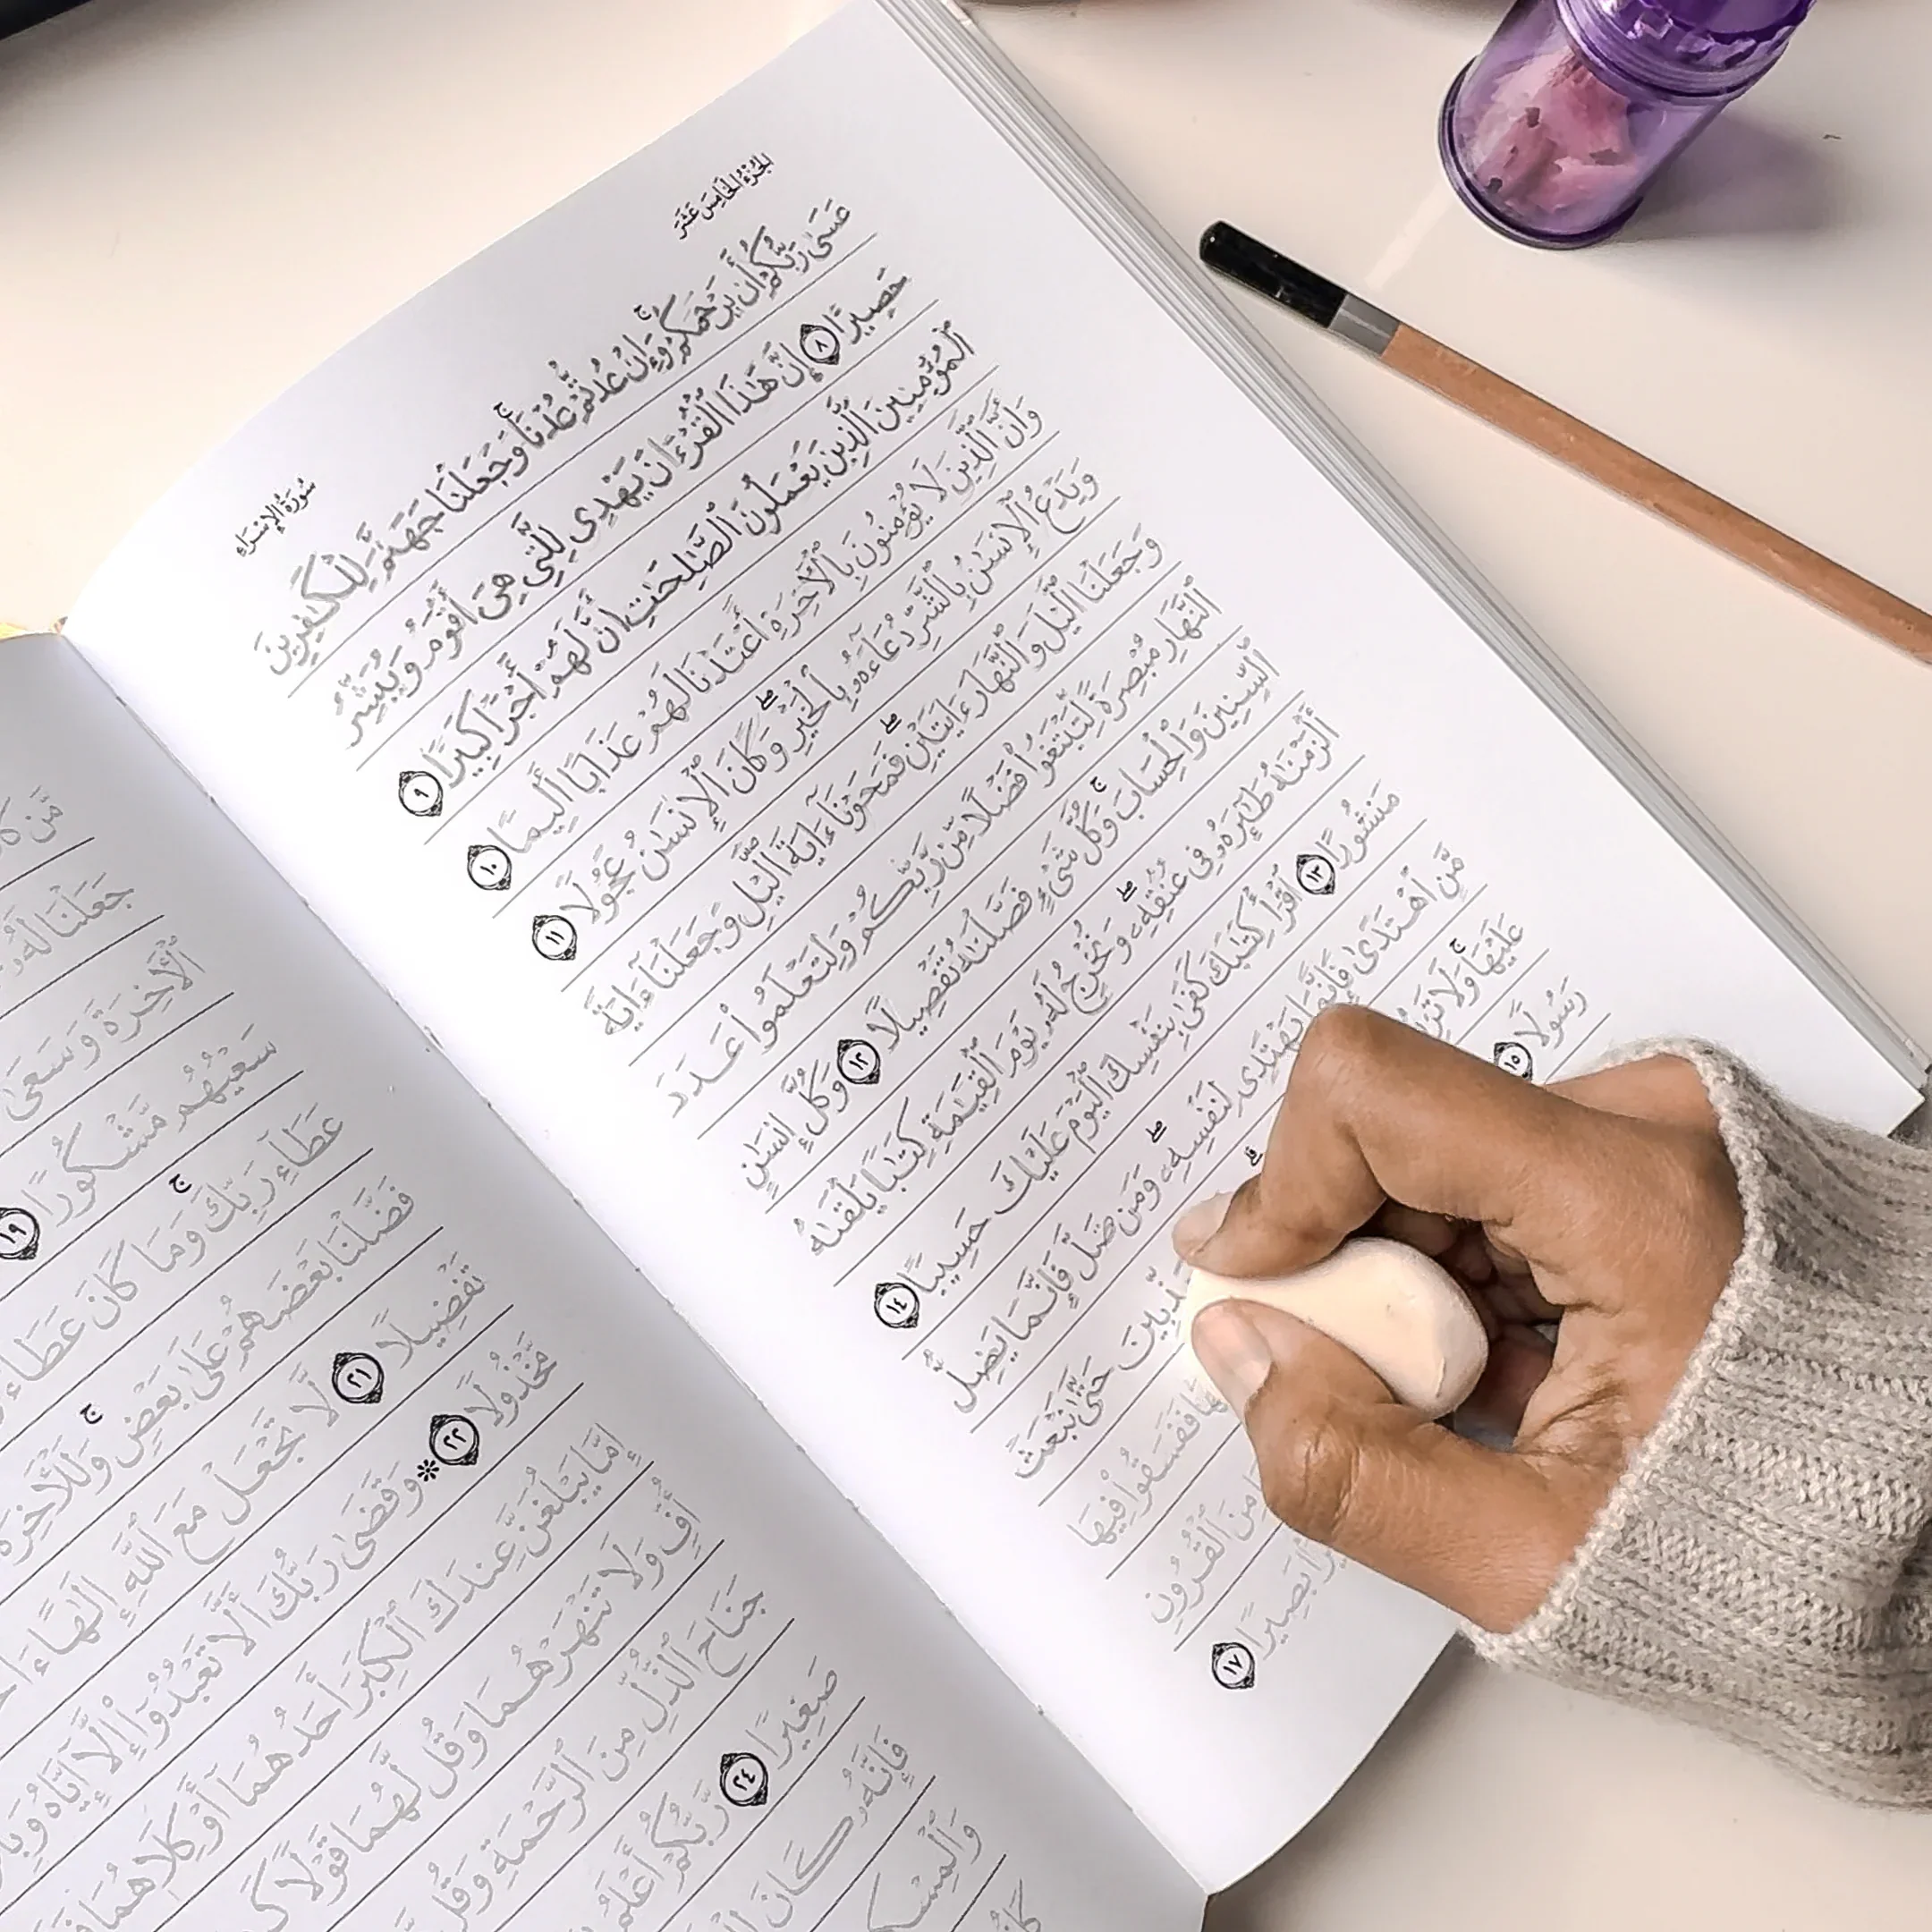 الجُزْءُ الخَامِسَ عَشَرَ
سُورَةُ الإِسْرَاءِ
عَسَىٰ رَبُّكُمْ أَن يَرْحَمَكُمْ ۚ وَإِنْ عُدتُّمْ عُدْنَا ۚ وَجَعَلْنَا جَهَنَّمَ لِلْكَـٰفِرِينَ
حَصِيرًا ٨ إِنَّ هَـٰذَا ٱلْقُرْءَانَ يَهْدِى لِلَّتِى هِىَ أَقْوَمُ وَيُبَشِّرُ
ٱلْمُؤْمِنِينَ ٱلَّذِينَ يَعْمَلُونَ ٱلصَّـٰلِحَـٰتِ أَنَّ لَهُمْ أَجْرًا كَبِيرًا ٩
وَأَنَّ ٱلَّذِينَ لَا يُؤْمِنُونَ بِٱلْـَٔاخِرَةِ أَعْتَدْنَا لَهُمْ عَذَابًا أَلِيمًا ١٠
وَيَدْعُ ٱلْإِنسَـٰنُ بِٱلشَّرِّ دُعَآءَهُۥ بِٱلْخَيْرِ ۖ وَكَانَ ٱلْإِنسَـٰنُ عَجُولًا ١١
وَجَعَلْنَا ٱلَّيْلَ وَٱلنَّهَارَ ءَايَتَيْنِ ۖ فَمَحَوْنَآ ءَايَةَ ٱلَّيْلِ وَجَعَلْنَآ ءَايَةَ
ٱلنَّهَارِ مُبْصِرَةً لِّتَبْتَغُوا۟ فَضْلًا مِّن رَّبِّكُمْ وَلِتَعْلَمُوا۟ عَدَدَ
ٱلسِّنِينَ وَٱلْحِسَابَ ۚ وَكُلَّ شَىْءٍ فَصَّلْنَـٰهُ تَفْصِيلًا ١٢ وَكُلَّ إِنسَـٰنٍ
أَلْزَمْنَـٰهُ طَـٰٓئِرَهُۥ فِى عُنُقِهِۦ ۖ وَنُخْرِجُ لَهُۥ يَوْمَ ٱلْقِيَـٰمَةِ كِتَـٰبًا يَلْقَىٰهُ
مَنشُورًا ١٣ ٱقْرَأْ كِتَـٰبَكَ كَفَىٰ بِنَفْسِكَ ٱلْيَوْمَ عَلَيْكَ حَسِيبًا ١٤
مَّنِ ٱهْتَدَىٰ فَإِنَّمَا يَهْتَدِى لِنَفْسِهِۦ ۖ وَمَن ضَلَّ فَإِنَّمَا يَضِلُّ
عَلَيْهَا ۚ وَلَا حَتَّىٰ نَبْعَثَ
رَسُولًا ١٥ فَفَسَقُوا۟ فِيهَا
مِنَ ٱلْقُرُونِ
بَصِيرًا ١٧
مَّن
جَعَلْنَا لَهُۥ
ٱلْـَٔاخِرَةَ وَسَعَىٰ
سَعْيُهُم مَّشْكُورًا ١٩
عَطَآءِ رَبِّكَ ۚ وَمَا كَانَ عَطَآءُ
فَضَّلْنَا بَعْضَهُمْ عَلَىٰ بَعْضٍ ۚ وَلَلْـَٔاخِرَةُ
تَفْضِيلًا ٢١ لَّا تَجْعَلْ مَعَ ٱللَّهِ إِلَـٰهًا ءَاخَرَ
مَّخْذُولًا ٢٢ * وَقَضَىٰ رَبُّكَ أَلَّا تَعْبُدُوٓا۟ إِلَّآ إِيَّاهُ
إِمَّا يَبْلُغَنَّ عِندَكَ ٱلْكِبَرَ أَحَدُهُمَآ أَوْ كِلَاهُمَا
أُفٍّ وَلَا تَنْهَرْهُمَا وَقُل لَّهُمَا قَوْلًا
جَنَاحَ ٱلذُّلِّ مِنَ ٱلرَّحْمَةِ وَقُل
صَغِيرًا ٢٤ رَّبُّكُمْ أَعْلَمُ
فَإِنَّهُۥ كَانَ